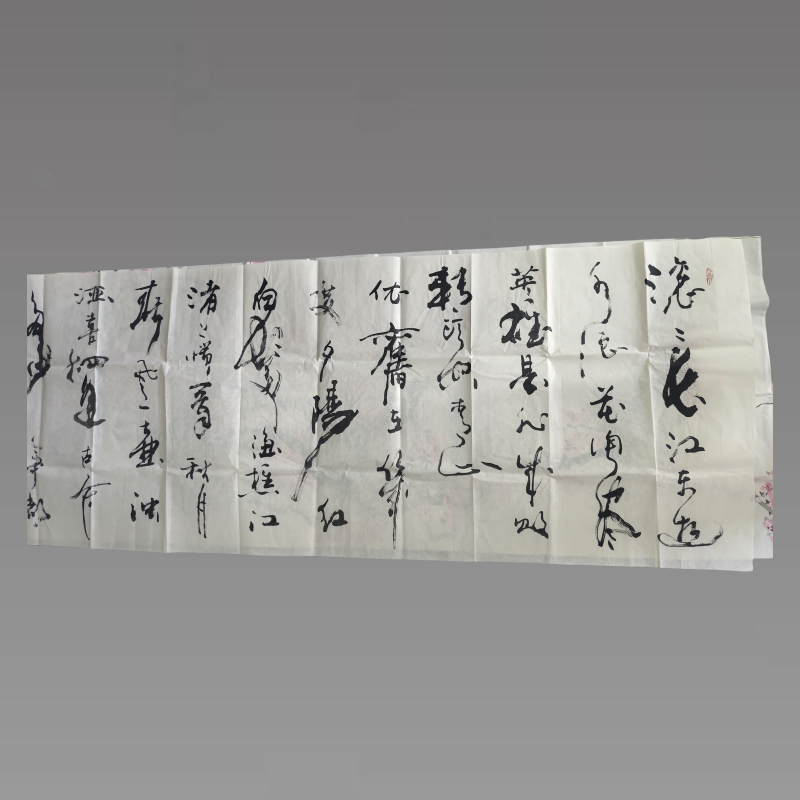 滚〻長江东逝
水浪花淘尽
英雄是非成败
轉頭空青山
依舊在幾
度夕陽红
白髮渔樵江
渚上慣看秋月
春风一壶浊
酒喜相逢古今
多少事都